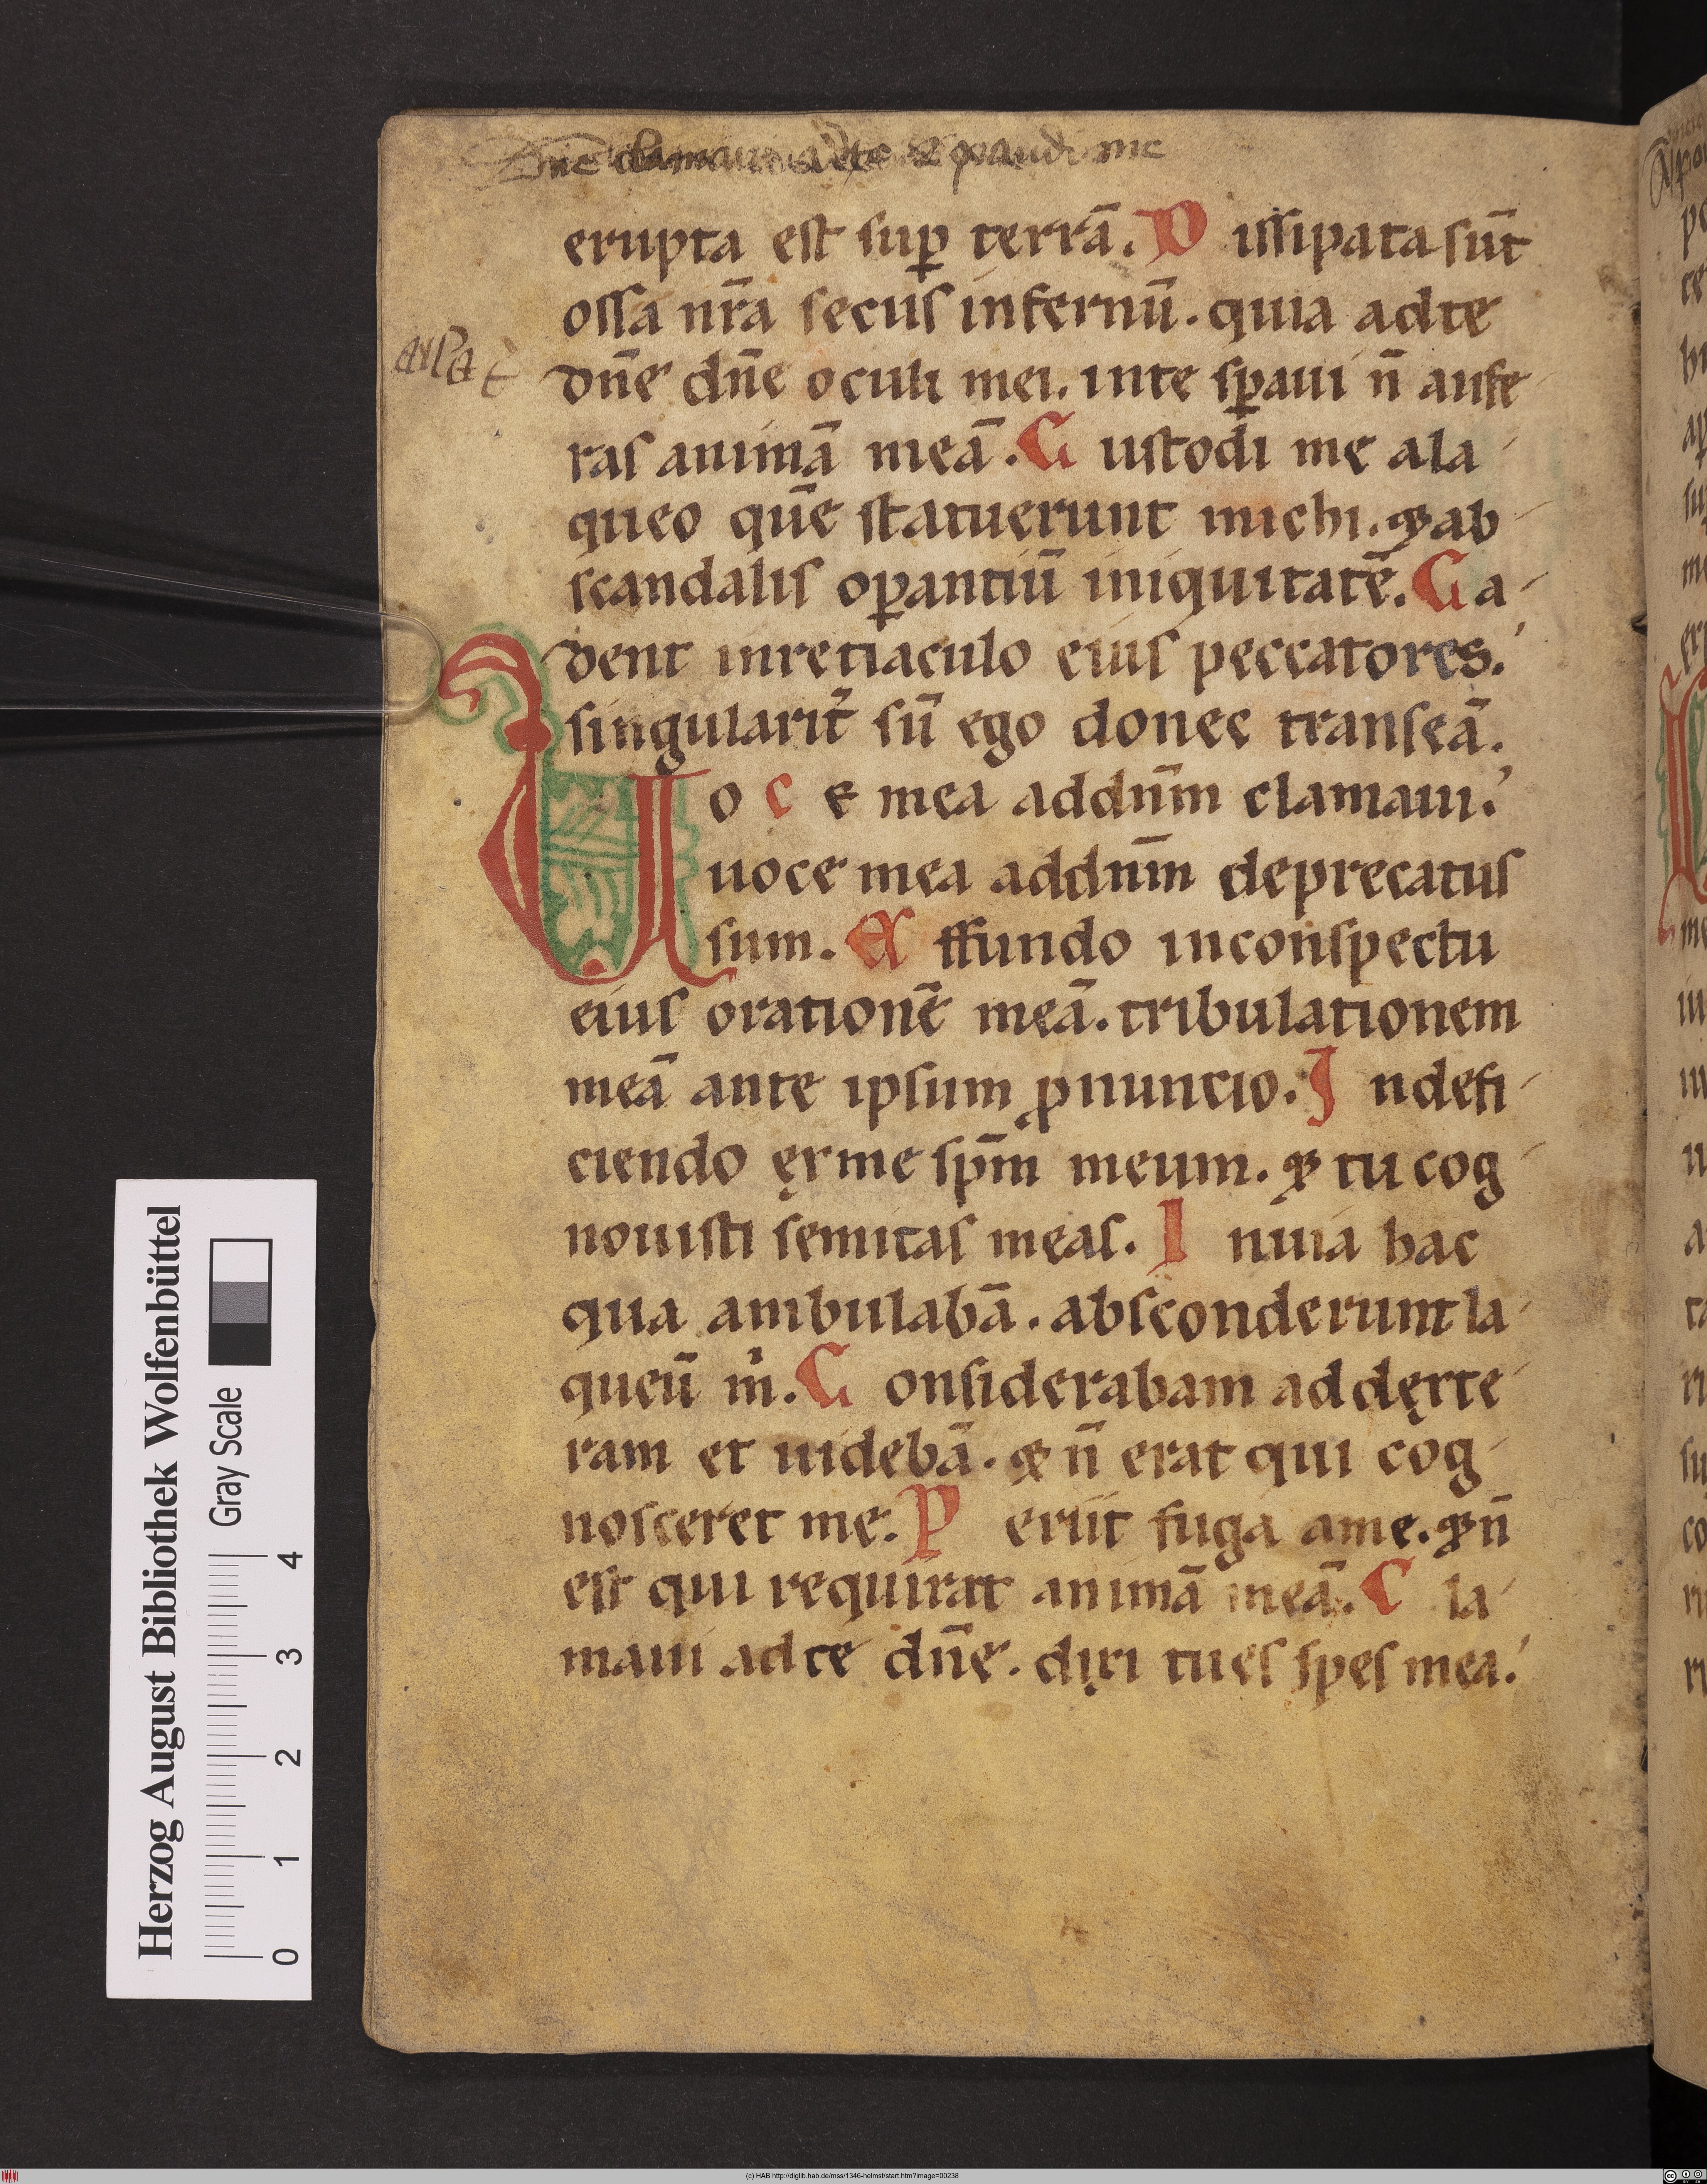 Dn̄e clamaui ad te & exaudi me
erupta est sup̱ terrā. D issipata sūt
ossa nr̄a secus infernū. quia adte
dn̄e dn̄e oculi mei. inte sp̱aui n̄ aufe
ras animā meā. C ustodi me ala
queo quē statuerunt michi. & ab
scandalis op̱antiū iniquitatē. C a
dent inretiaculo eius peccatores.
singularit̄ sū ego donec transeā.
V o c e mea addn̄m clamaui.
uoce mea addn̄m deprecatus
sum. E ffundo inconspectu
eius orationē meā. tribulationem
meā ante ipsum ꝓnuncio. I ndefi
ciendo ex me sp̄m meum. & tu cog
nouisti semitas meas. I nuia hac
qua ambulabā. absconderunt la
queū m̄. C onsiderabam addexte
ram et uidebā. & n̄ erat qui cog
nosceret me. P eriit fuga ame. & n̄
est qui requirat animā meā. C la
maui adte dn̄e. dixi tu es spes mea.
Herzog August Bibliothek Wolfenbüttel
Gray Scale
0 1 2 3 4
(c) HAB http://diglib.hab.de/mss/1346-helmst/start.htm?image=00238